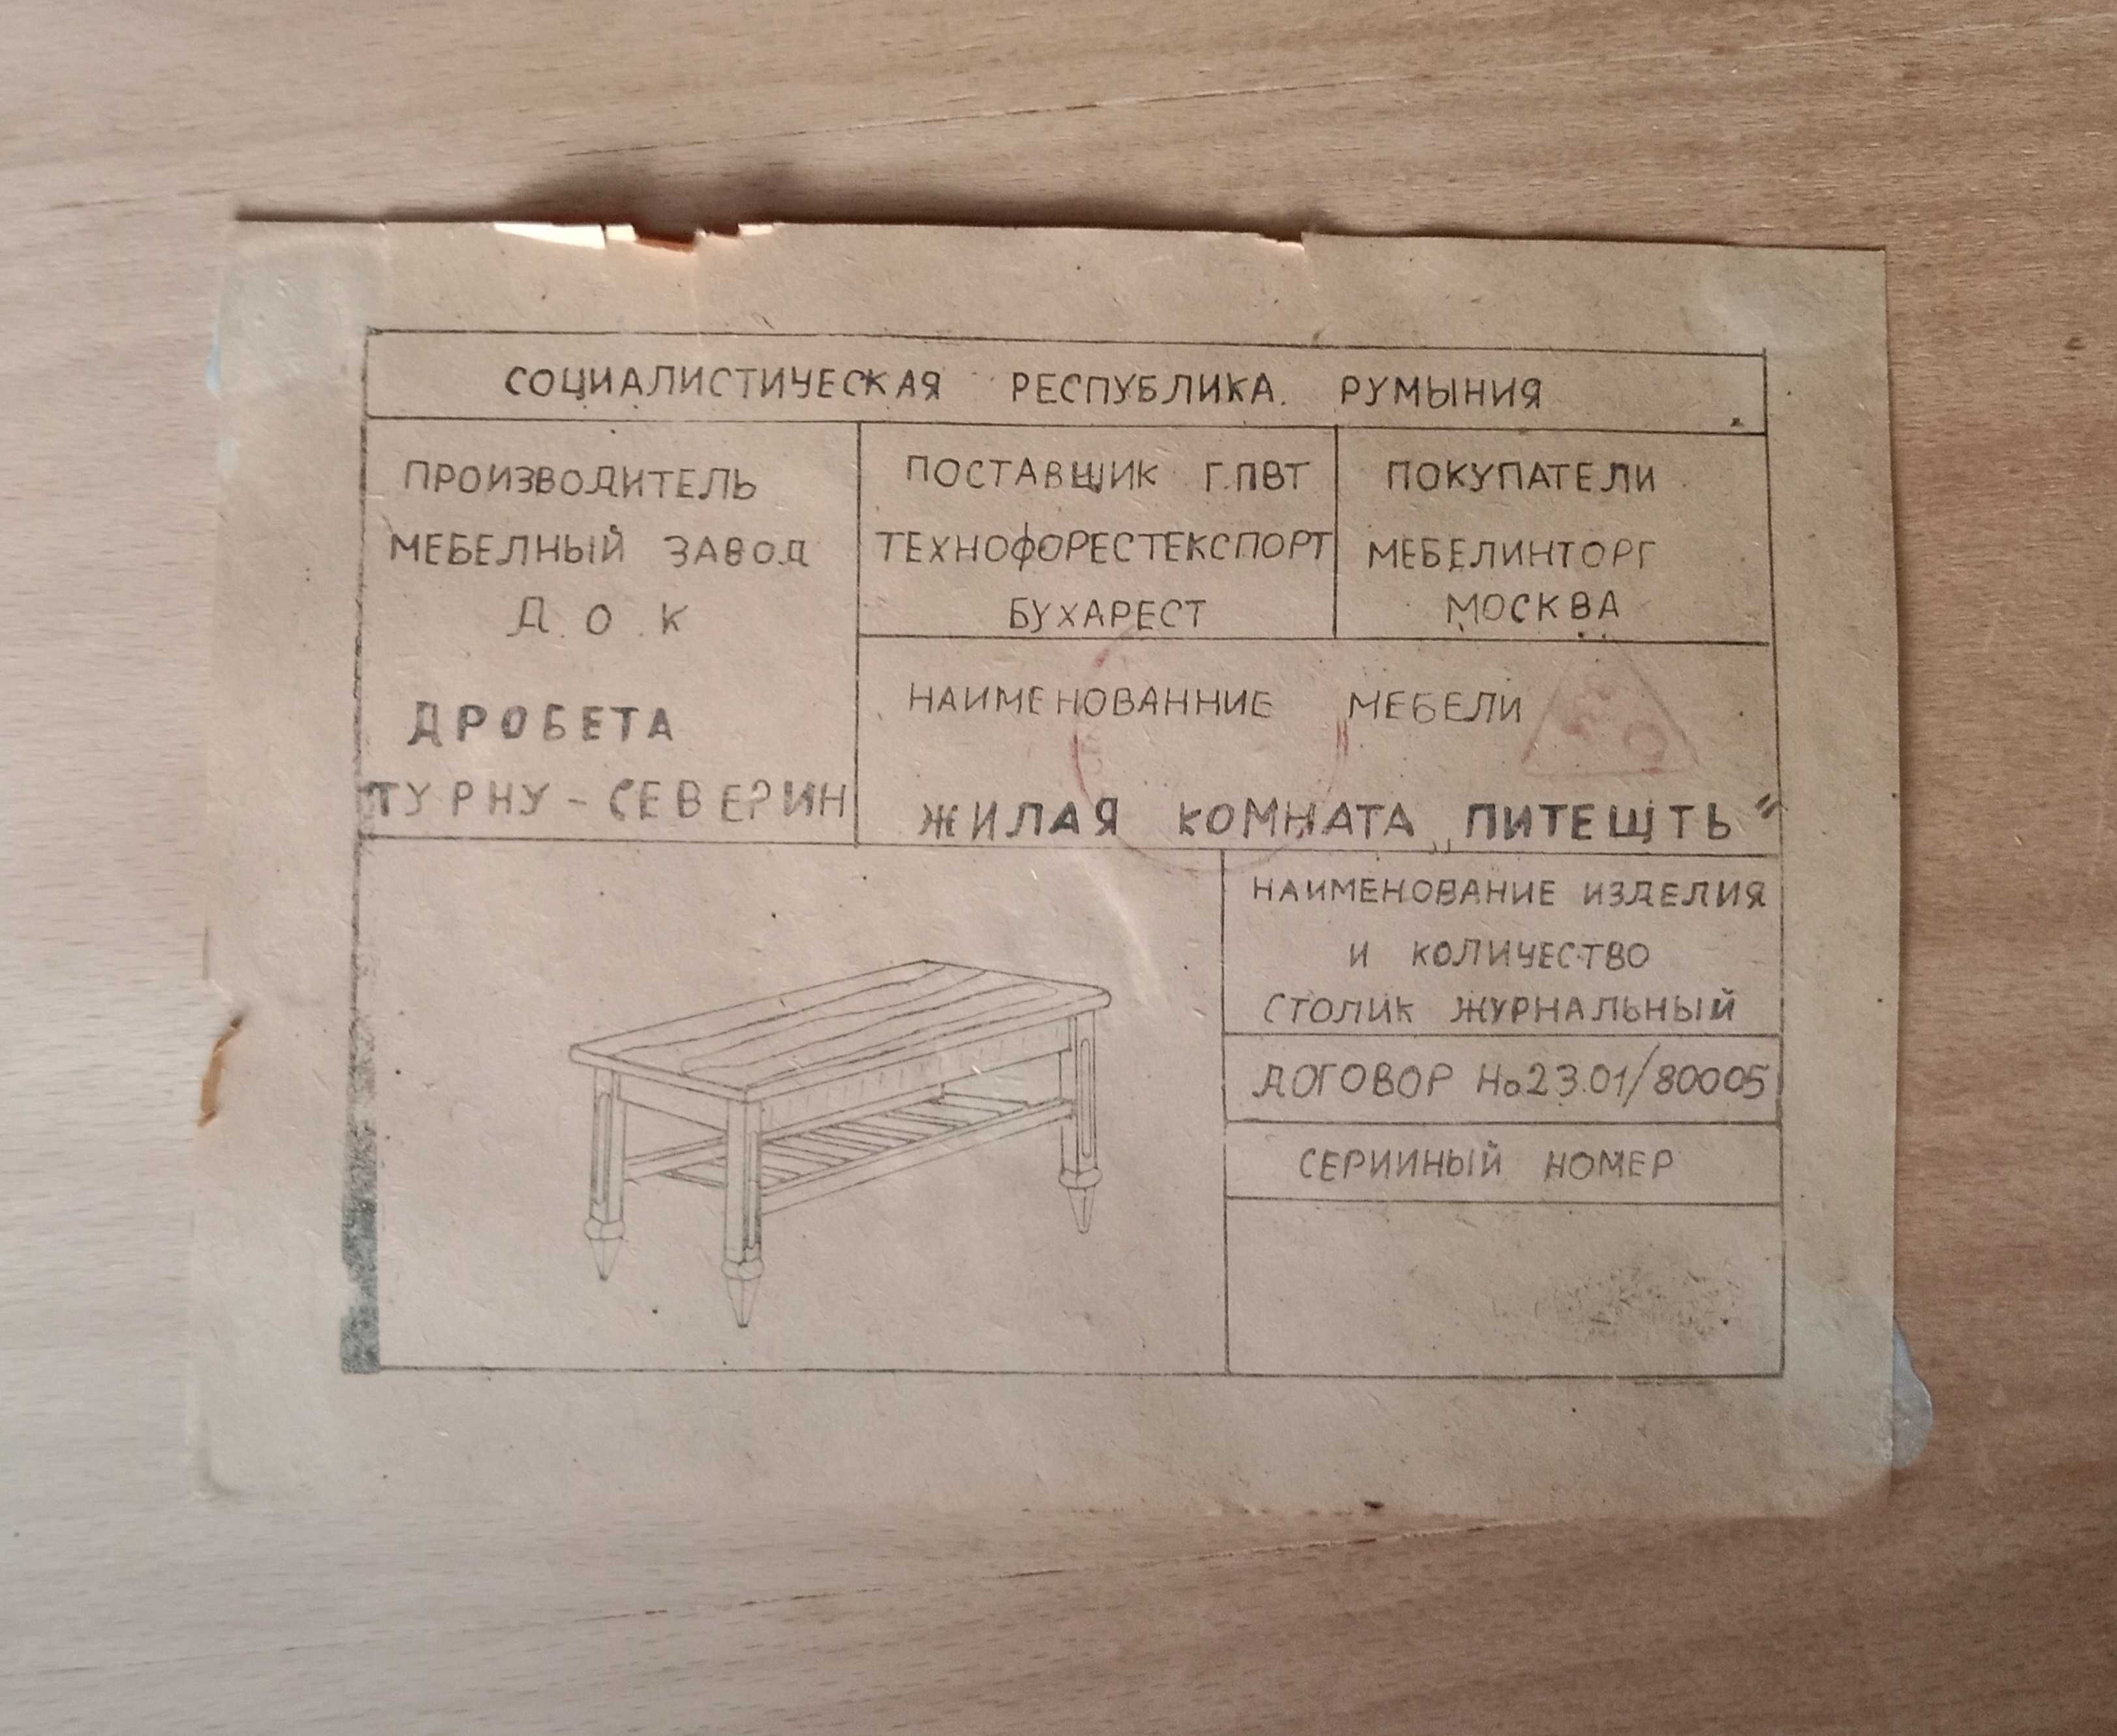 СОЦИАЛИСТИЧЕСКАЯ РЕСПУБЛИКА. РУМЫНИЯ
ПРОИЗВОДИТЕЛЬ
МЕБЕЛНЫЙ ЗАВОД
Д. О. К
ДРОБЕТА
ТУРНУ - СЕВЕРИН
ПОСТАВЩИК Г.ПВТ
ТЕХНОФОРЕСТЕКСПОРТ
БУХАРЕСТ
ПОКУПАТЕЛИ
МЕБЕЛИНТОРГ
МОСКВА
НАИМЕНОВАННИЕ МЕБЕЛИ
ЖИЛАЯ КОМНАТА „ПИТЕШТЬ"
НАИМЕНОВАНИЕ ИЗДЕЛИЯ
И КОЛИЧЕСТВО
СТОЛИК ЖУРНАЛЬНЫЙ
ДОГОВОР No23.01/80005
СЕРИИНЫЙ НОМЕР